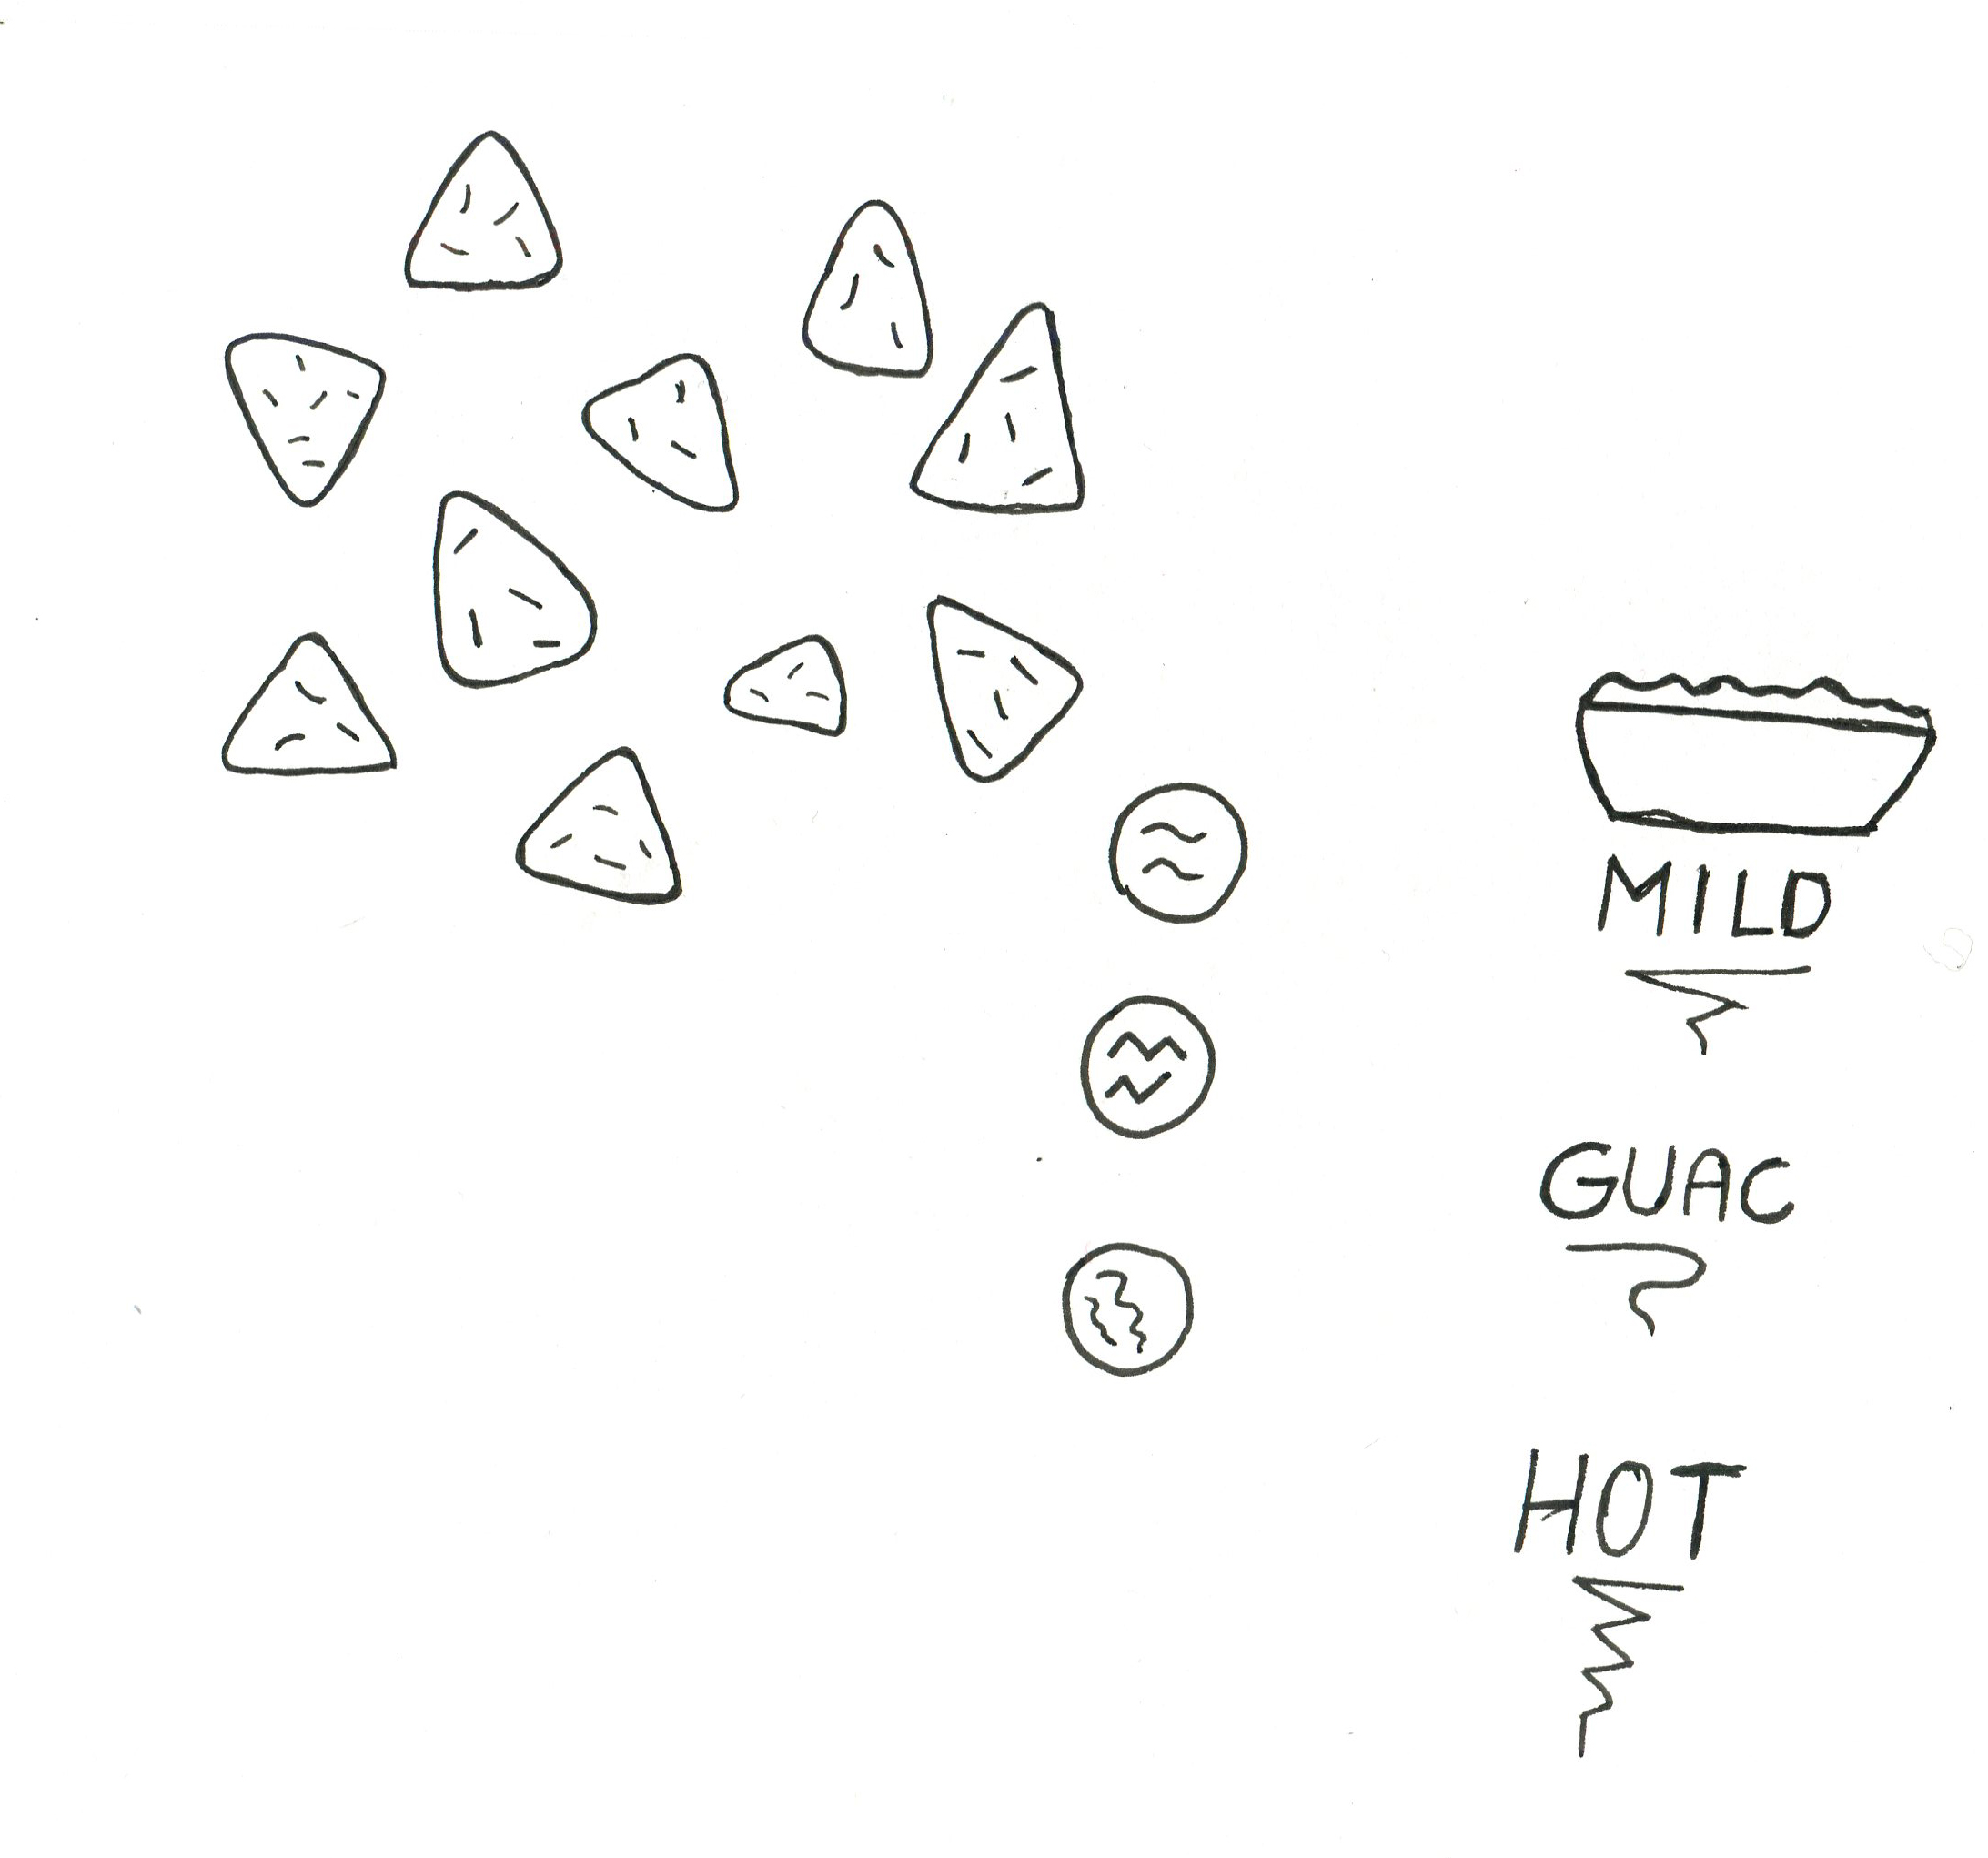 MILD
GUAC
HOT